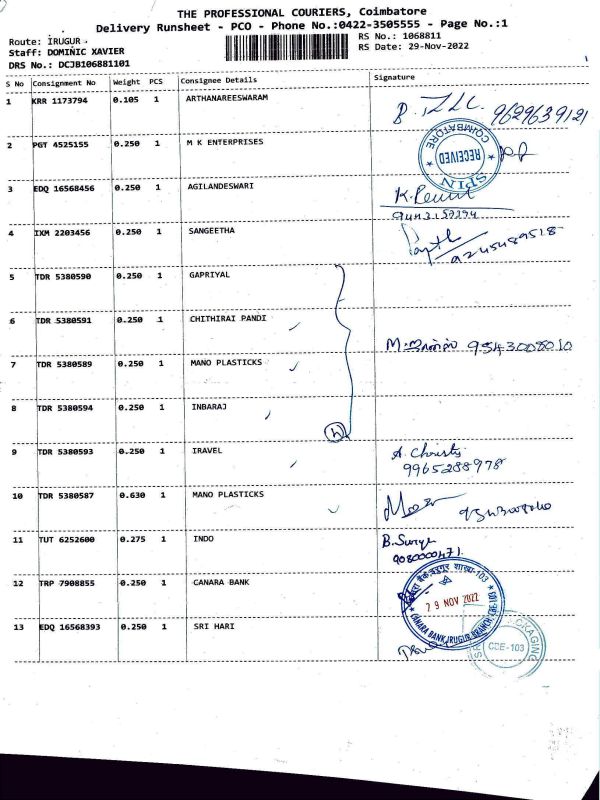 THE PROFESSIONAL COURIERS, Coimbatore
Delivery Runsheet - PCO - Phone No.:0422-3505555 - Page No.:1
Route: IRUGUR
RS No.: 1068811
Staff: DOMINIC XAVIER
RS Date: 29-Nov-2022
DRS No.: DCJB106881101
S No Consignment No Weight PCS Consignee Details Signature
1 KRR 1173794 0.105 1 ARTHANAREESWARAM 9629639121
2 PGT 4525155 0.250 1 M K ENTERPRISES
COIMBATORE RECEIVED SPIN
3 EDQ 16568456 0.250 1 AGILANDESWARI
4 IXM 2203456 0.250 1 SANGEETHA 9245489518
5 TDR 5380590 0.250 1 GAPRIYAL
6 TDR 5380591 0.250 1 CHITHIRAI PANDI 9543008010
7 TDR 5380589 0.250 1 MANO PLASTICKS
8 TDR 5380594 0.250 1 INBARAJ
9 TDR 5380593 0.250 1 IRAVEL A. Christy
9965288978
10 TDR 5380587 0.630 1 MANO PLASTICKS
11 TUT 6252600 0.275 1 INDO B. Surya
9080000471
12 TRP 7908855 0.250 1 CANARA BANK
29 NOV 2022
CANARA BANK, IRUGUR BRANCH, CBE-103
13 EDQ 16568393 0.250 1 SRI HARI
CBE-103